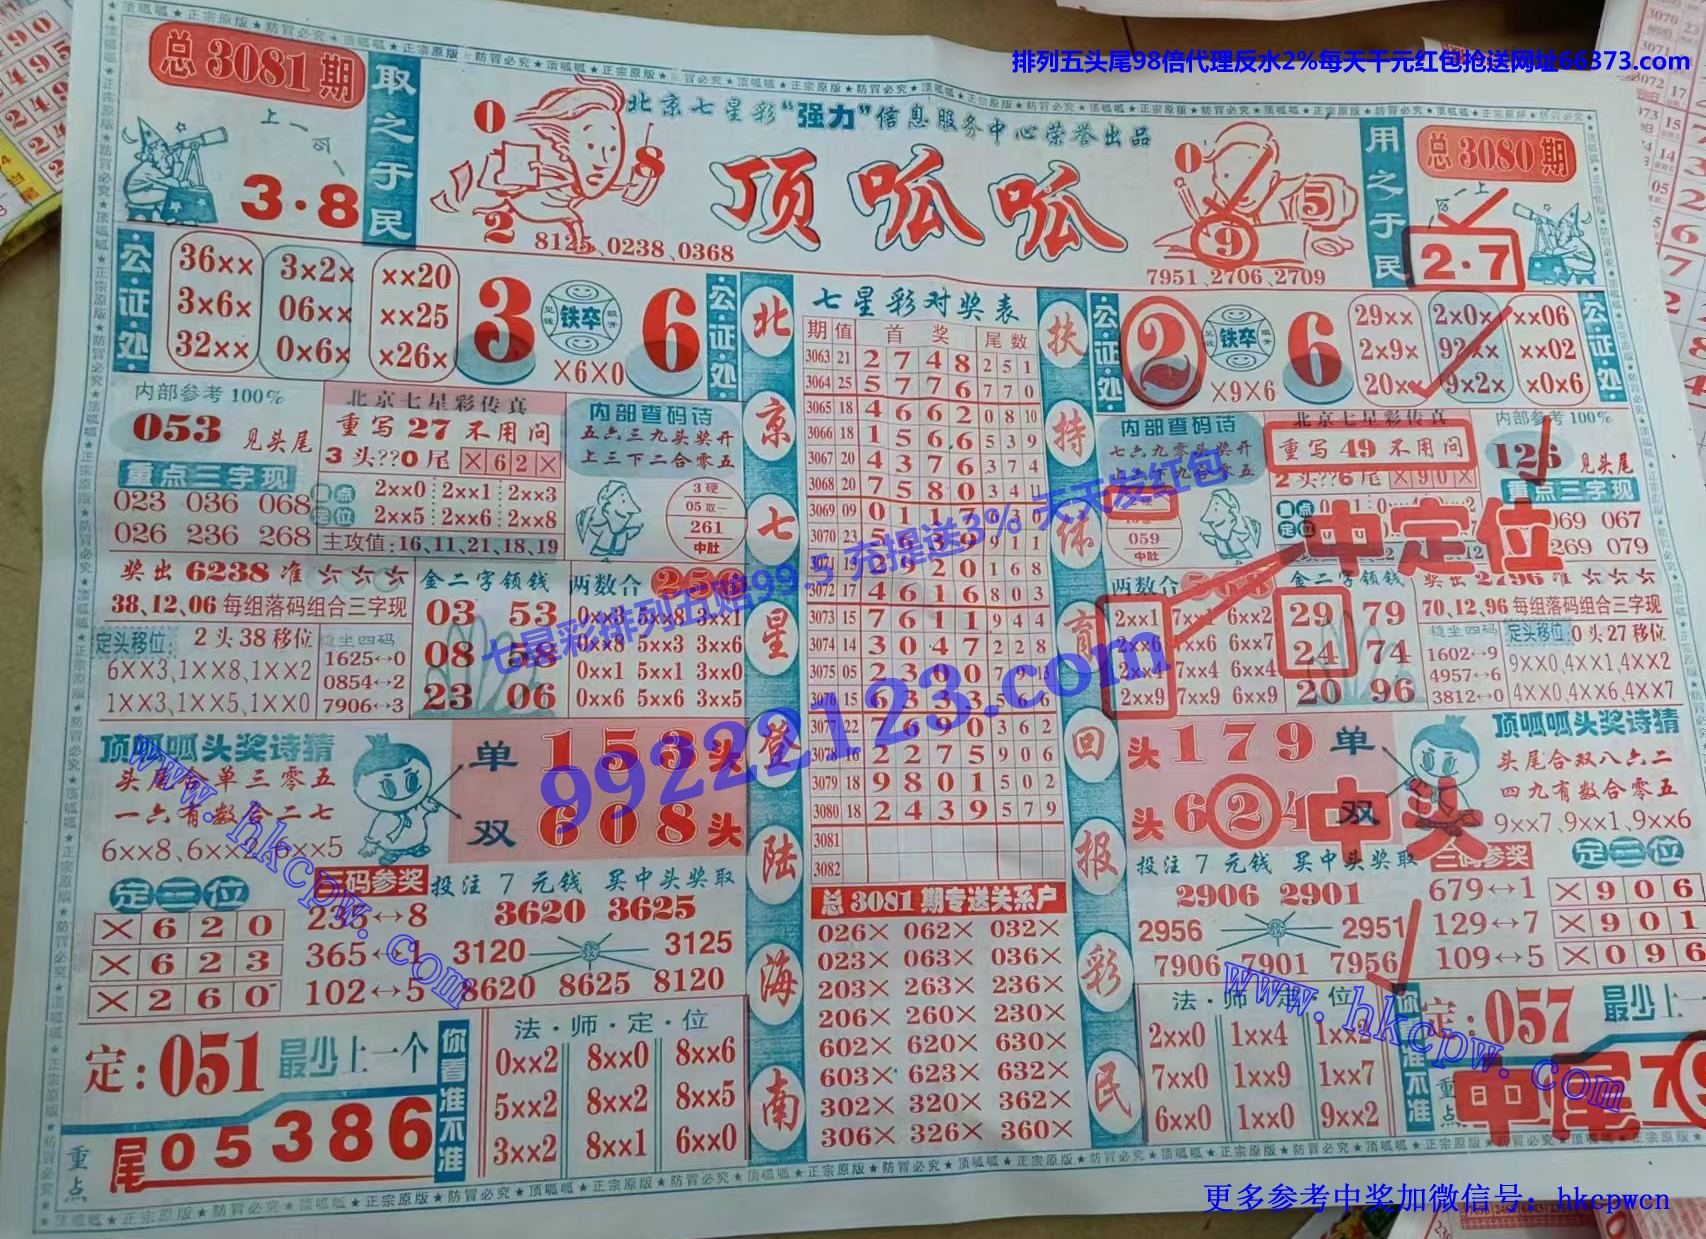 排列五头尾98倍代理反水2%每天千元红包抢送网址66373.com
总3081期
取之于民
上一码
3·8
0
8
2
8125、0238、0368
北京七星彩“强力”信息服务中心荣誉出品
顶呱呱
0
5
9
7951、2706、2709
用之于民
总3080期
2·7
公证处
36×× 3×2× ××20
3×6× 06×× ××25
32×× 0×6× ×26×
3 铁卒 6
×6×0
公证处
内部参考100%
053 见头尾
重点三字现
023 036 068
026 236 268
北京七星彩传真
重写27不用问
3头??0尾 ×62×
重点定位
2××0 2××1 2××3
2××5 2××6 2××8
主攻值:16、11、21、18、19
内部查码诗
五六三九头奖开
上三下二合零五
3硬
05取一
261
中肚
奖出6238准
38、12、06每组落码组合三字现
定头移位: 2头38移位
6××3、1××8、1××2
1××3、1××5、1××0
稳坐四码
1625↔0
0854↔2
7906↔3
金二字领钱
03 53
08 58
23 06
两数合
0××3 5××8 3××1
0××8 5××3 3××6
0××1 5××1 3××0
0××6 5××6 3××5
顶呱呱头奖诗猜
头尾合单三零五
一六有数合二七
单 153头
双 608头
定三位
×620
×623
×260
三码参奖
235↔8
365↔1
102↔5
投注7元钱 买中头奖取
3620 3625
3120 3125
8620 8625 8120
定:051最少上一个
尾05386
重点
你看准不准
法·师·定·位
0××2 8××0 8××6
5××2 8××2 8××5
3××2 8××1 6××0
北京七星登陆海南
七星彩对奖表
期 值 首奖 尾数
3063 21 2748 251
3064 25 5776 770
3065 18 4662 0810
3066 18 1566 539
3067 20 4376 374
3068 20 7580
3069 09 0117
3070 23 5639 911
168
3072 17 4616 803
3073 15 7611 944
3074 14 3047 228
3075 05 2300
3076 15 6333 566
3077 22 7690 362
3078 16 2275 906
3079 18 9801 502
3080 18 2439 579
3081
3082
总3081期专送关系户
026× 062× 032×
023× 063× 036×
203× 263× 236×
206× 260× 230×
602× 620× 630×
603× 623× 632×
302× 320× 362×
306× 326× 360×
扶持体育回报彩民
公证处
2 铁卒 6
×9×6
29×× 2×0× ××06
2×9× 92×× ××02
20×× 9×2× ×0×6
公证处
内部查码诗
七六九零头奖开
059
中肚
北京七星彩传真
重写49不用问
2头??6尾 ×90×
内部参考100%
126 见头尾
重点三字现
069 067
269 079
中定位
两数合 568
2××1 7××1 6××2
2××6 7××6 6××7
2××4 7××4 6××4
2××9 7××9 6××9
金二字领钱
29 79
24 74
20 96
奖出2796准
70、12、96每组落码组合三字现
稳坐四码
1602↔9
4957↔6
3812↔0
定头移位: 0头27移位
9××0、4××1、4××2
4××0、4××6、4××7
头179单
头624双
中头
顶呱呱头奖诗猜
头尾合双八六二
四九有数合零五
9××7、9××1、9××6
投注7元钱 买中头奖取
2906 2901
2956 2951
7906 7901 7956
三码参奖
679↔1
129↔7
109↔5
定三位
×906
×901
×096
法·师·定·位
2××0 1××4 1××2
7××0 1××9 1××7
6××0 1××0 9××2
定:057最少上一
中尾7
七星彩排列五赔99.5 充提送3% 天天发红包
99222123.com
www.hkcpw.com
www.hkcpw.com
更多参考中奖加微信号：hkcpwcn